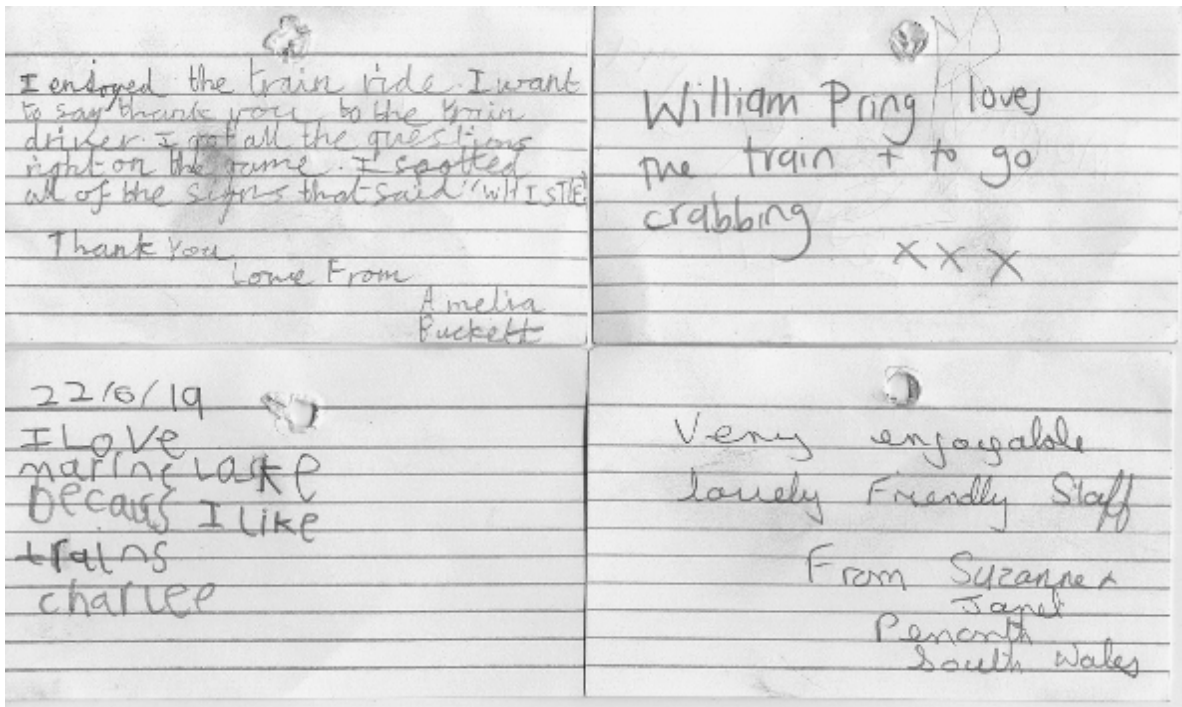 I enjoyed the train ride. I want
to say thank you to the train
driver. I got all the questions
right on the game. I spotted
all of the signs that said "WHISTLE"
Thank You
Love From
Amelia
Puckett
William Pring loves
the train + to go
crabbing
XXX
22/6/19
I Love
marine Lake
Becaus I like
trains
charlee
Very enjoyable
lovely Friendly Staff
From Suzanne +
Janet
Penarth
South Wales